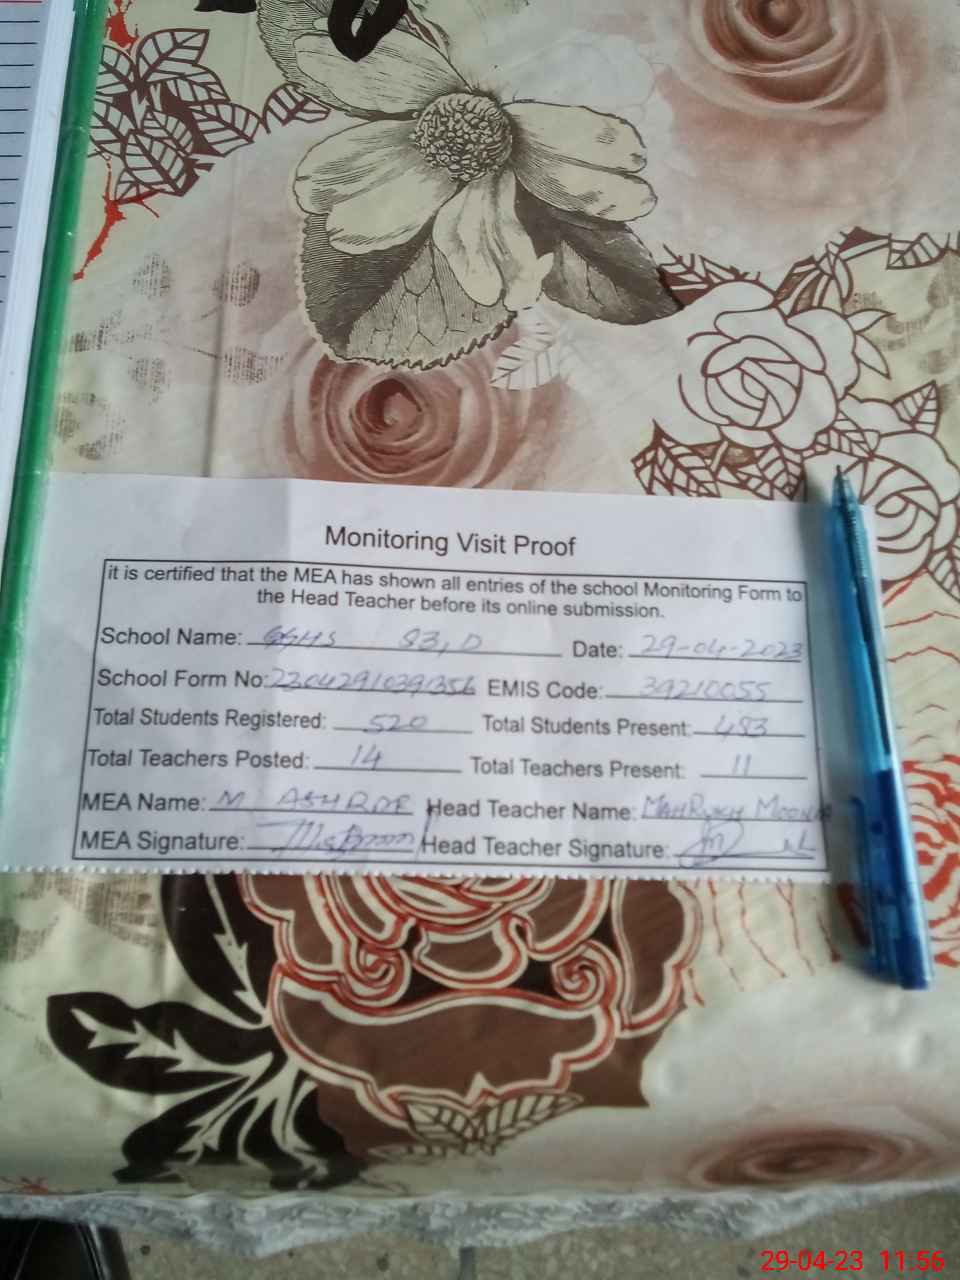 Monitoring Visit Proof
it is certified that the MEA has shown all entries of the school Monitoring Form to
the Head Teacher before its online submission.
School Name: GGHS 83, D Date: 29-04-2023
School Form No: EMIS Code: 39210055
Total Students Registered: 520 Total Students Present: 483
Total Teachers Posted: 14 Total Teachers Present: 11
MEA Name: M Head Teacher Name: MAHRUKH
MEA Signature: Head Teacher Signature:
29-04-23 11:56